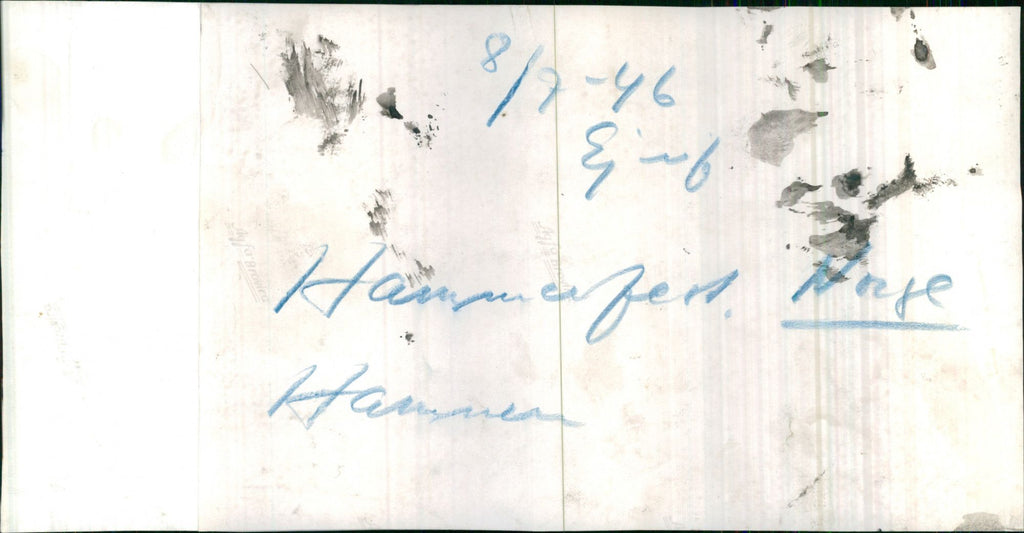 8/7-46
Ej upf
Hammerfest. Norge
Hamnen